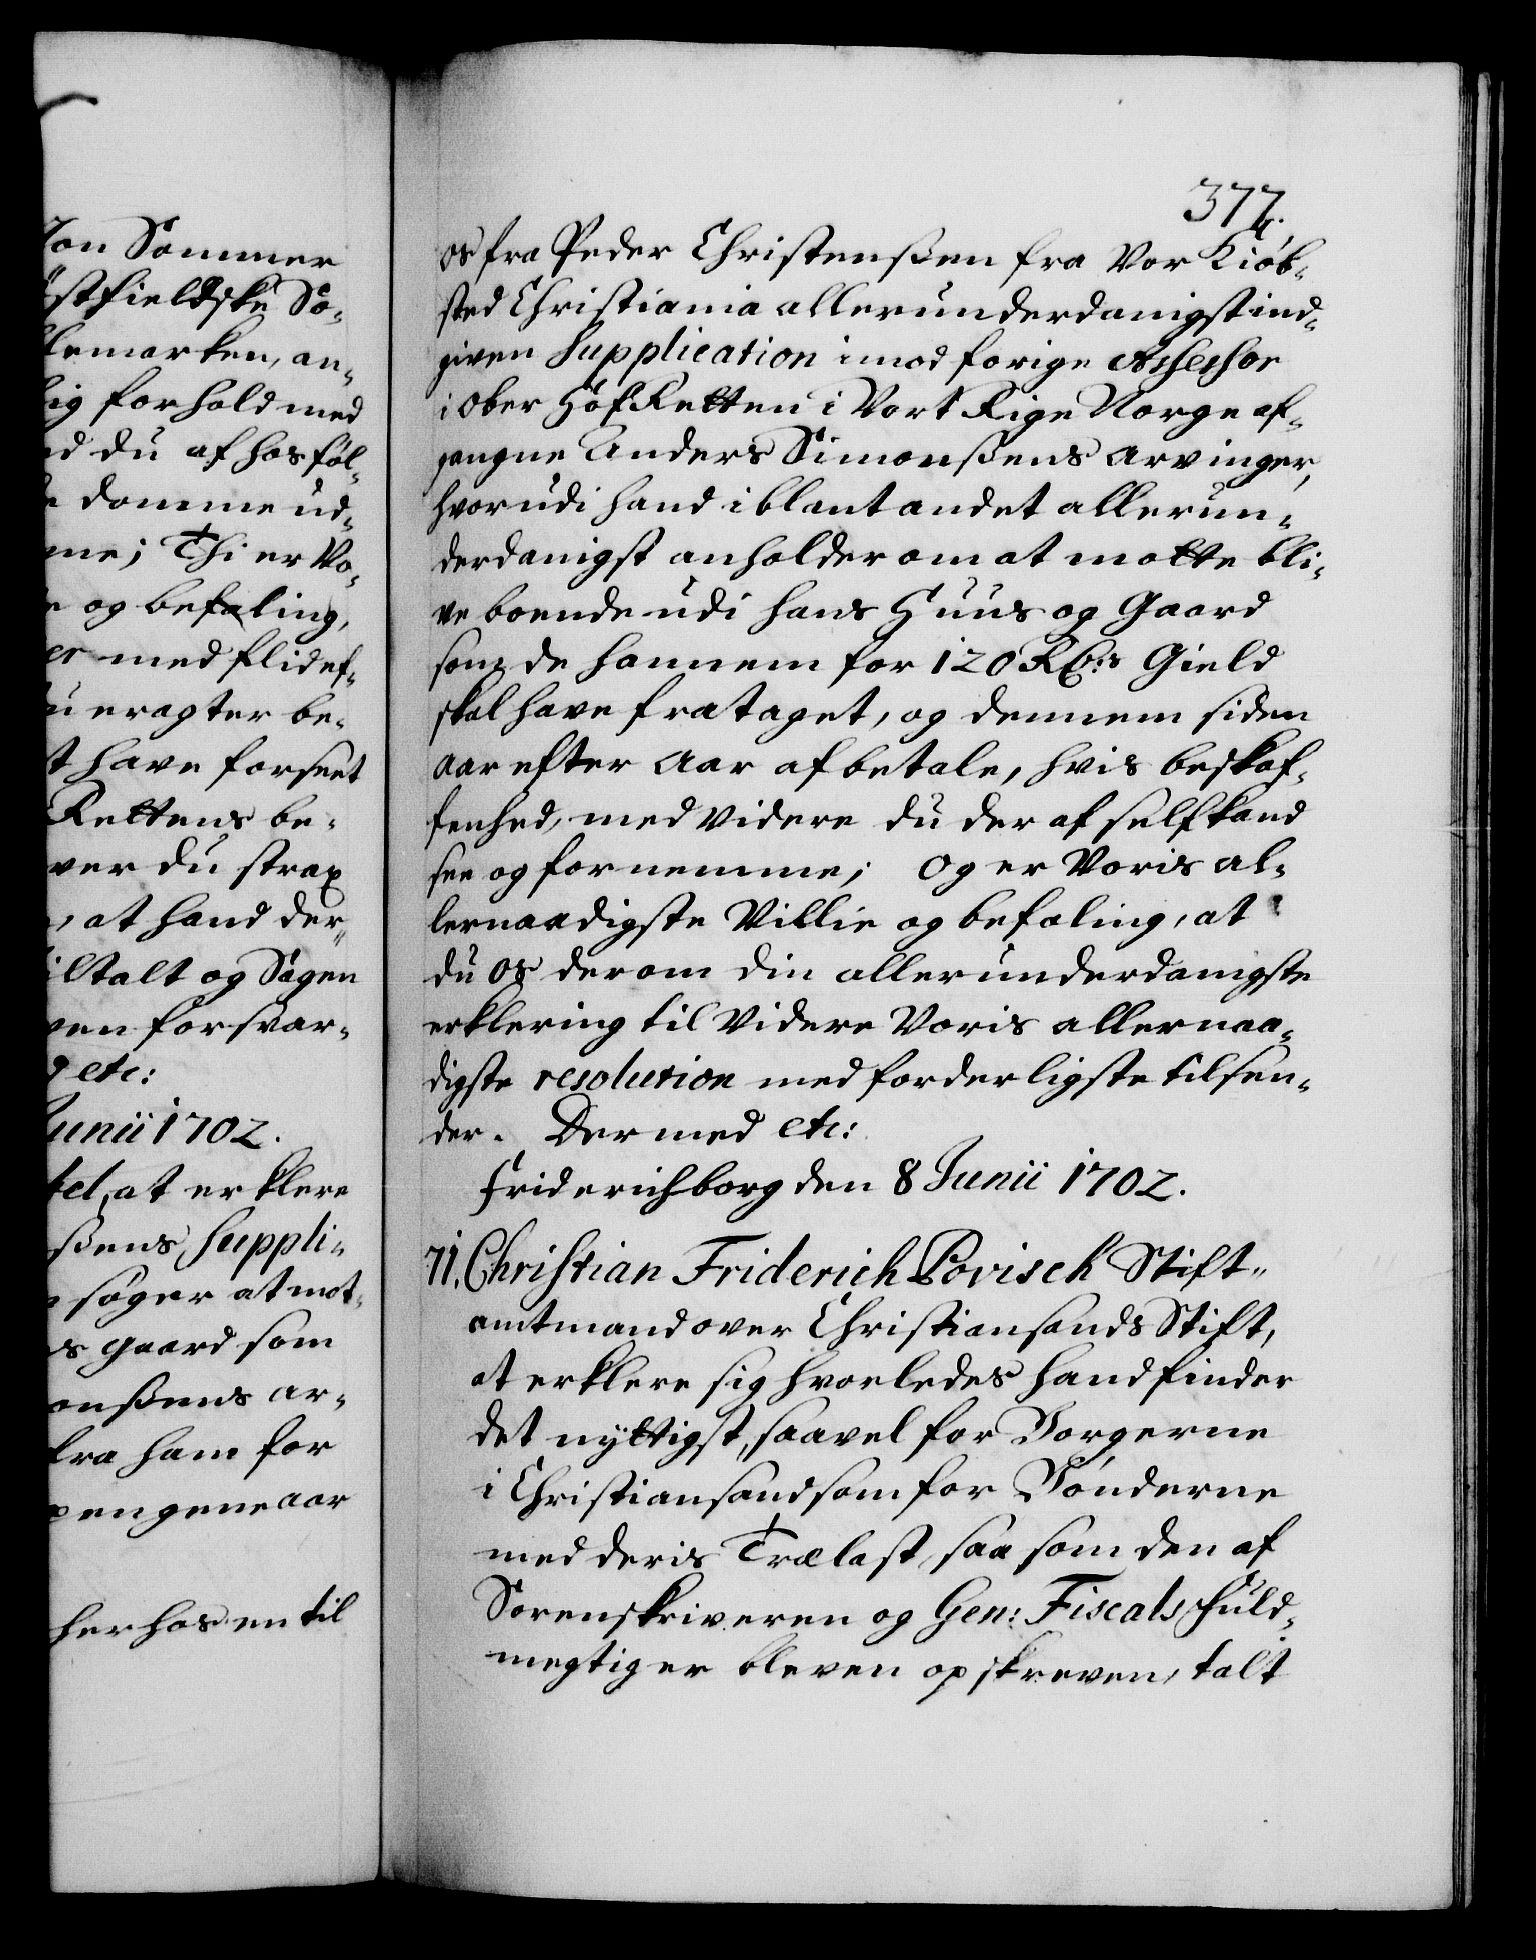 Jon Sommer
stfieldske Sø-
lemarken, an-
lig forhold med
d du af hosføl-
e domme ud-
me; Thi er Vo-
e og befaling,
er med flidef-
u eragter be-
t have forseet
Rettens be-
ver du strax
, at hand der-
iltalt og Sagen
pen forsvar-
etc:
Junii 1702.
tel, at erklere
ßens Suppli-
søger at mot-
s gaard som
onßens ar-
fra ham for
pengene aar
herhos en til
377.
os fra Peder Christenßen fra Vor Kiøb-
sted Christiania allerunderdanigst ind-
given Supplication imod forige Assessor
i Ober Hof Retten i Vort Rige Norge af-
gangne Anders Simonßens arvinger,
hvorudi hand iblant andet allerun-
derdanigst anholder om at motte bli-
ve boende udi hans Huus og Gaard
som de hannem for 120 Rd:s Gield
skal have frataget, og dennem siden
aar efter aar afbetale, hvis beskaf-
fenhed, med videre du der af self kand
see og fornemme; Og er Voris al-
lernaadigste Villie og befaling, at
du os derom din allerunderdanigste
erklering til videre Voris allernaa-
digste resolution med forderligste tilsen-
der. Dermed etc:
Friderichborg den 8 Junii 1702.
71. Christian Friderich Povisch Stift-
amtmand over Christiansands Stift,
at erklere sig hvorledes hand finder
det nyttigst, saavel for Borgerne
i Christiansand som for Bønderne
med deris Trælast, saa som den af
Sorenskriveren og Gen: Fiscals fuld-
megtig er bleven opskreven, talt